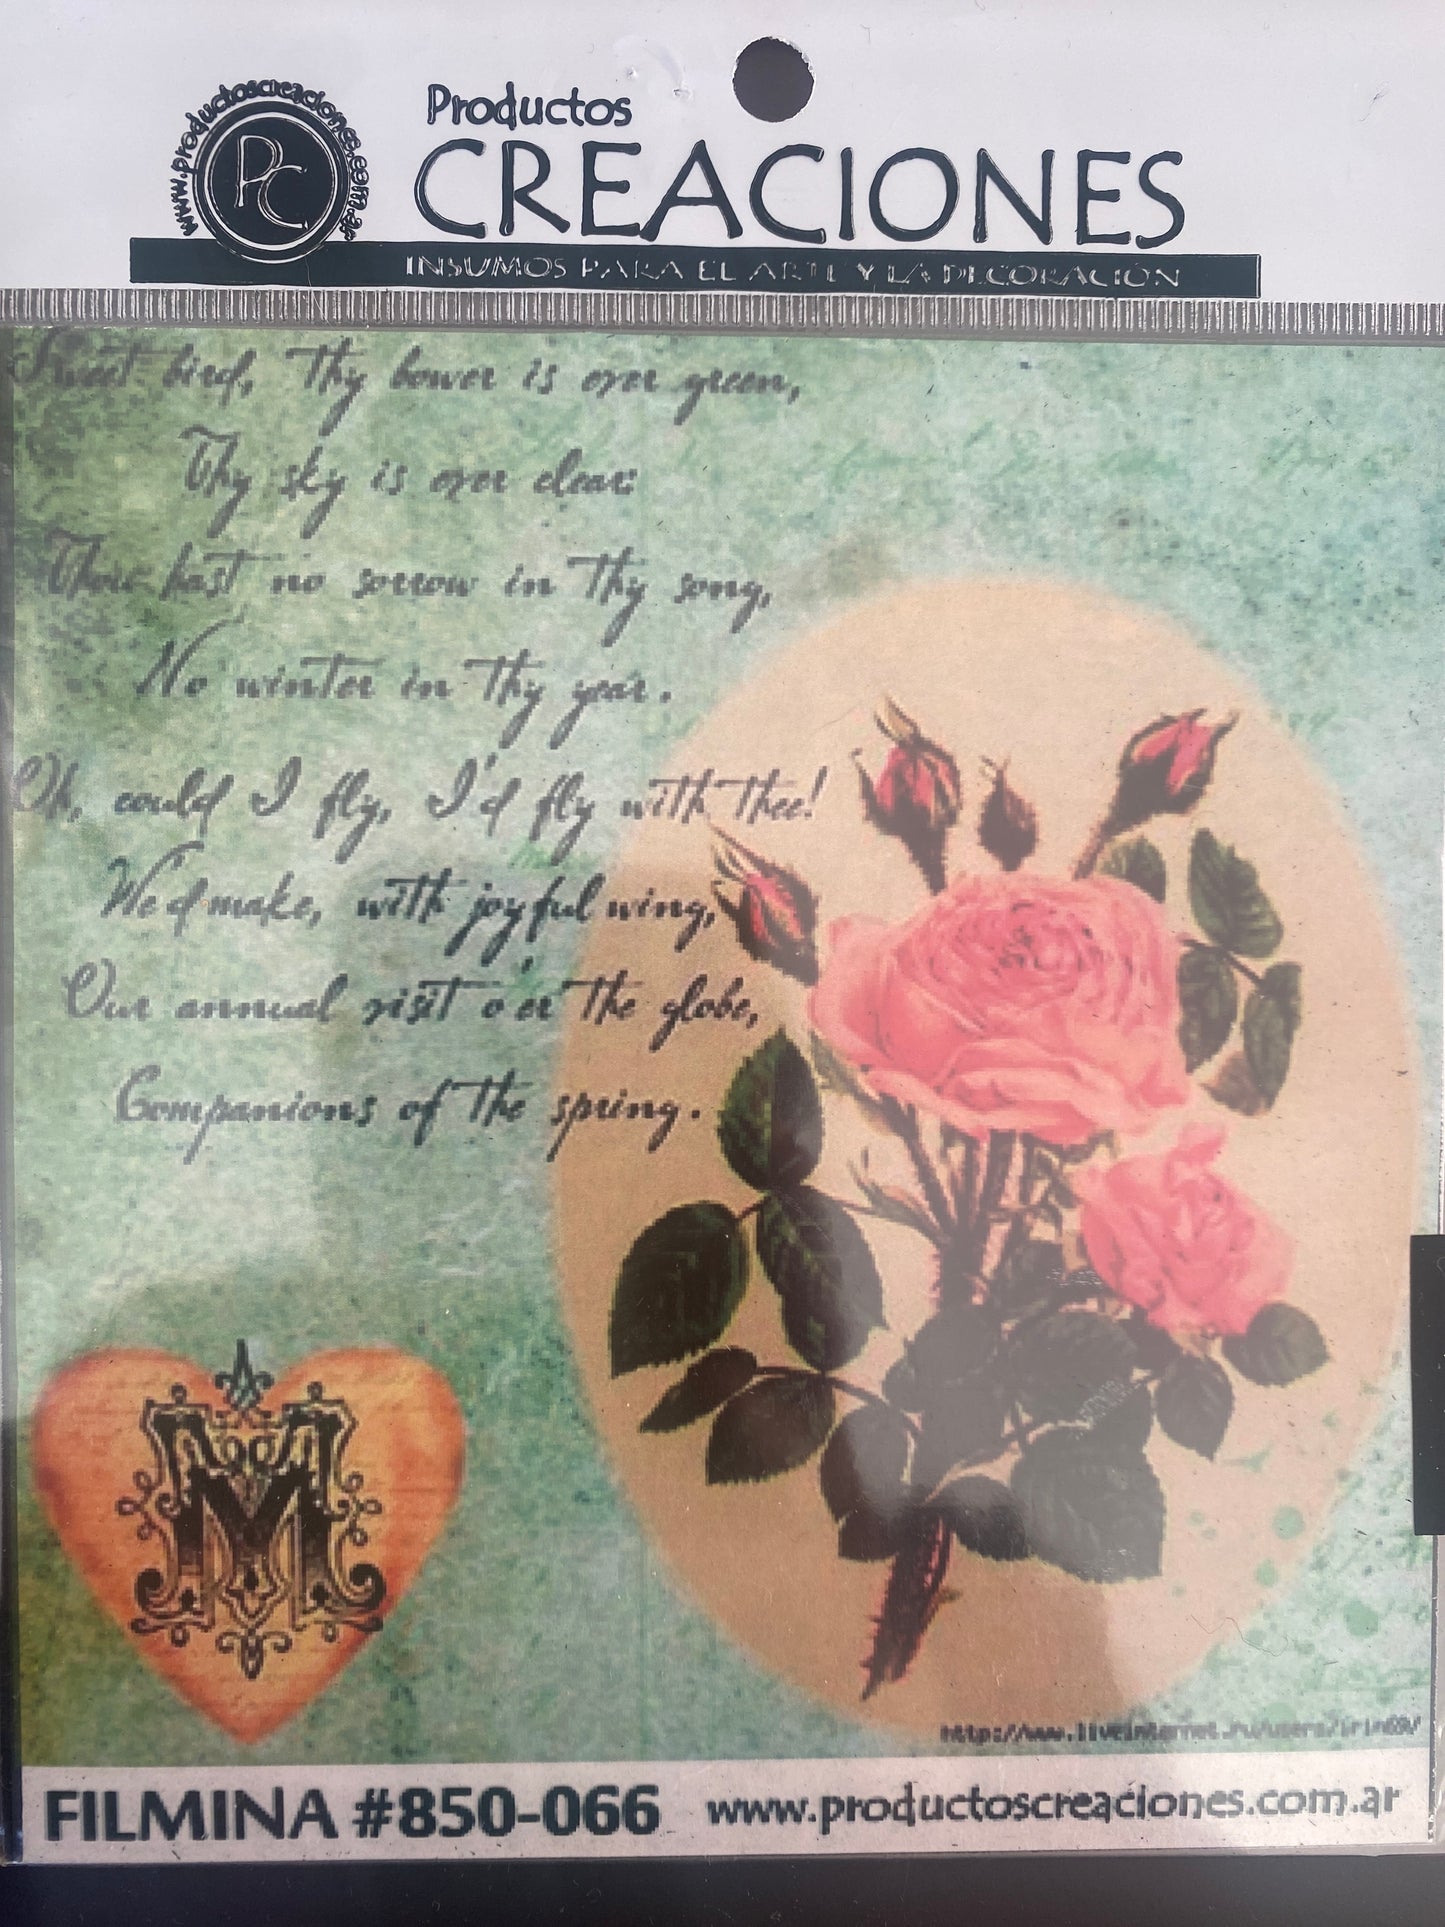 www.productoscreaciones.com.ar
PC
Productos
CREACIONES
INSUMOS PARA EL ARTE Y LA DECORACIÓN
Sweet bird, thy bower is ever green,
Thy sky is ever clear:
Thou hast no sorrow in thy song,
No winter in thy year.
Oh, could I fly, I'd fly with thee!
We'd make, with joyful wing,
Our annual visit o'er the globe,
Companions of the spring.
M
http://www.liveinternet.ru/users/
FILMINA #850-066 www.productoscreaciones.com.ar